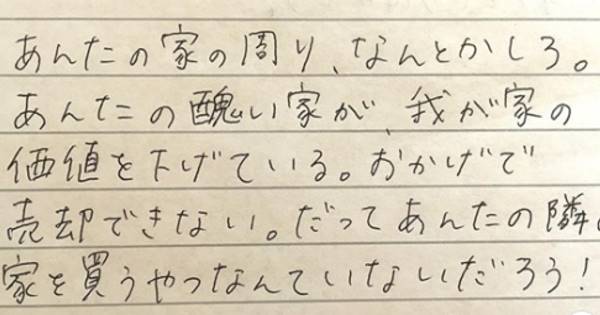 あんたの家の周り、なんとかしろ。
あんたの醜い家が、我が家の
価値を下げている。おかげで
売却できない。だってあんたの隣の
家を買うやつなんていないだろう！